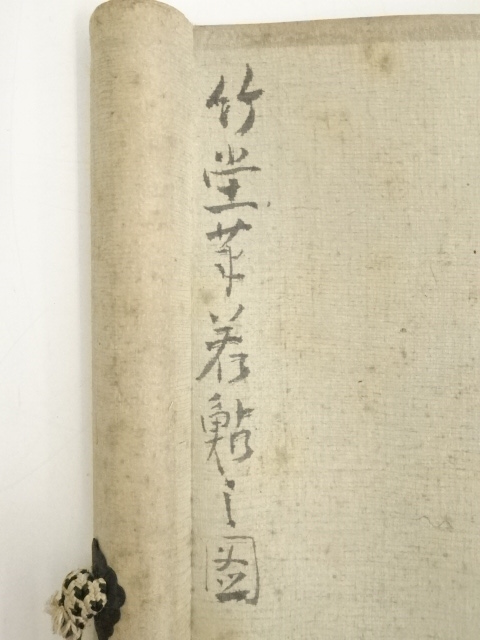 竹堂筆若鮎之図